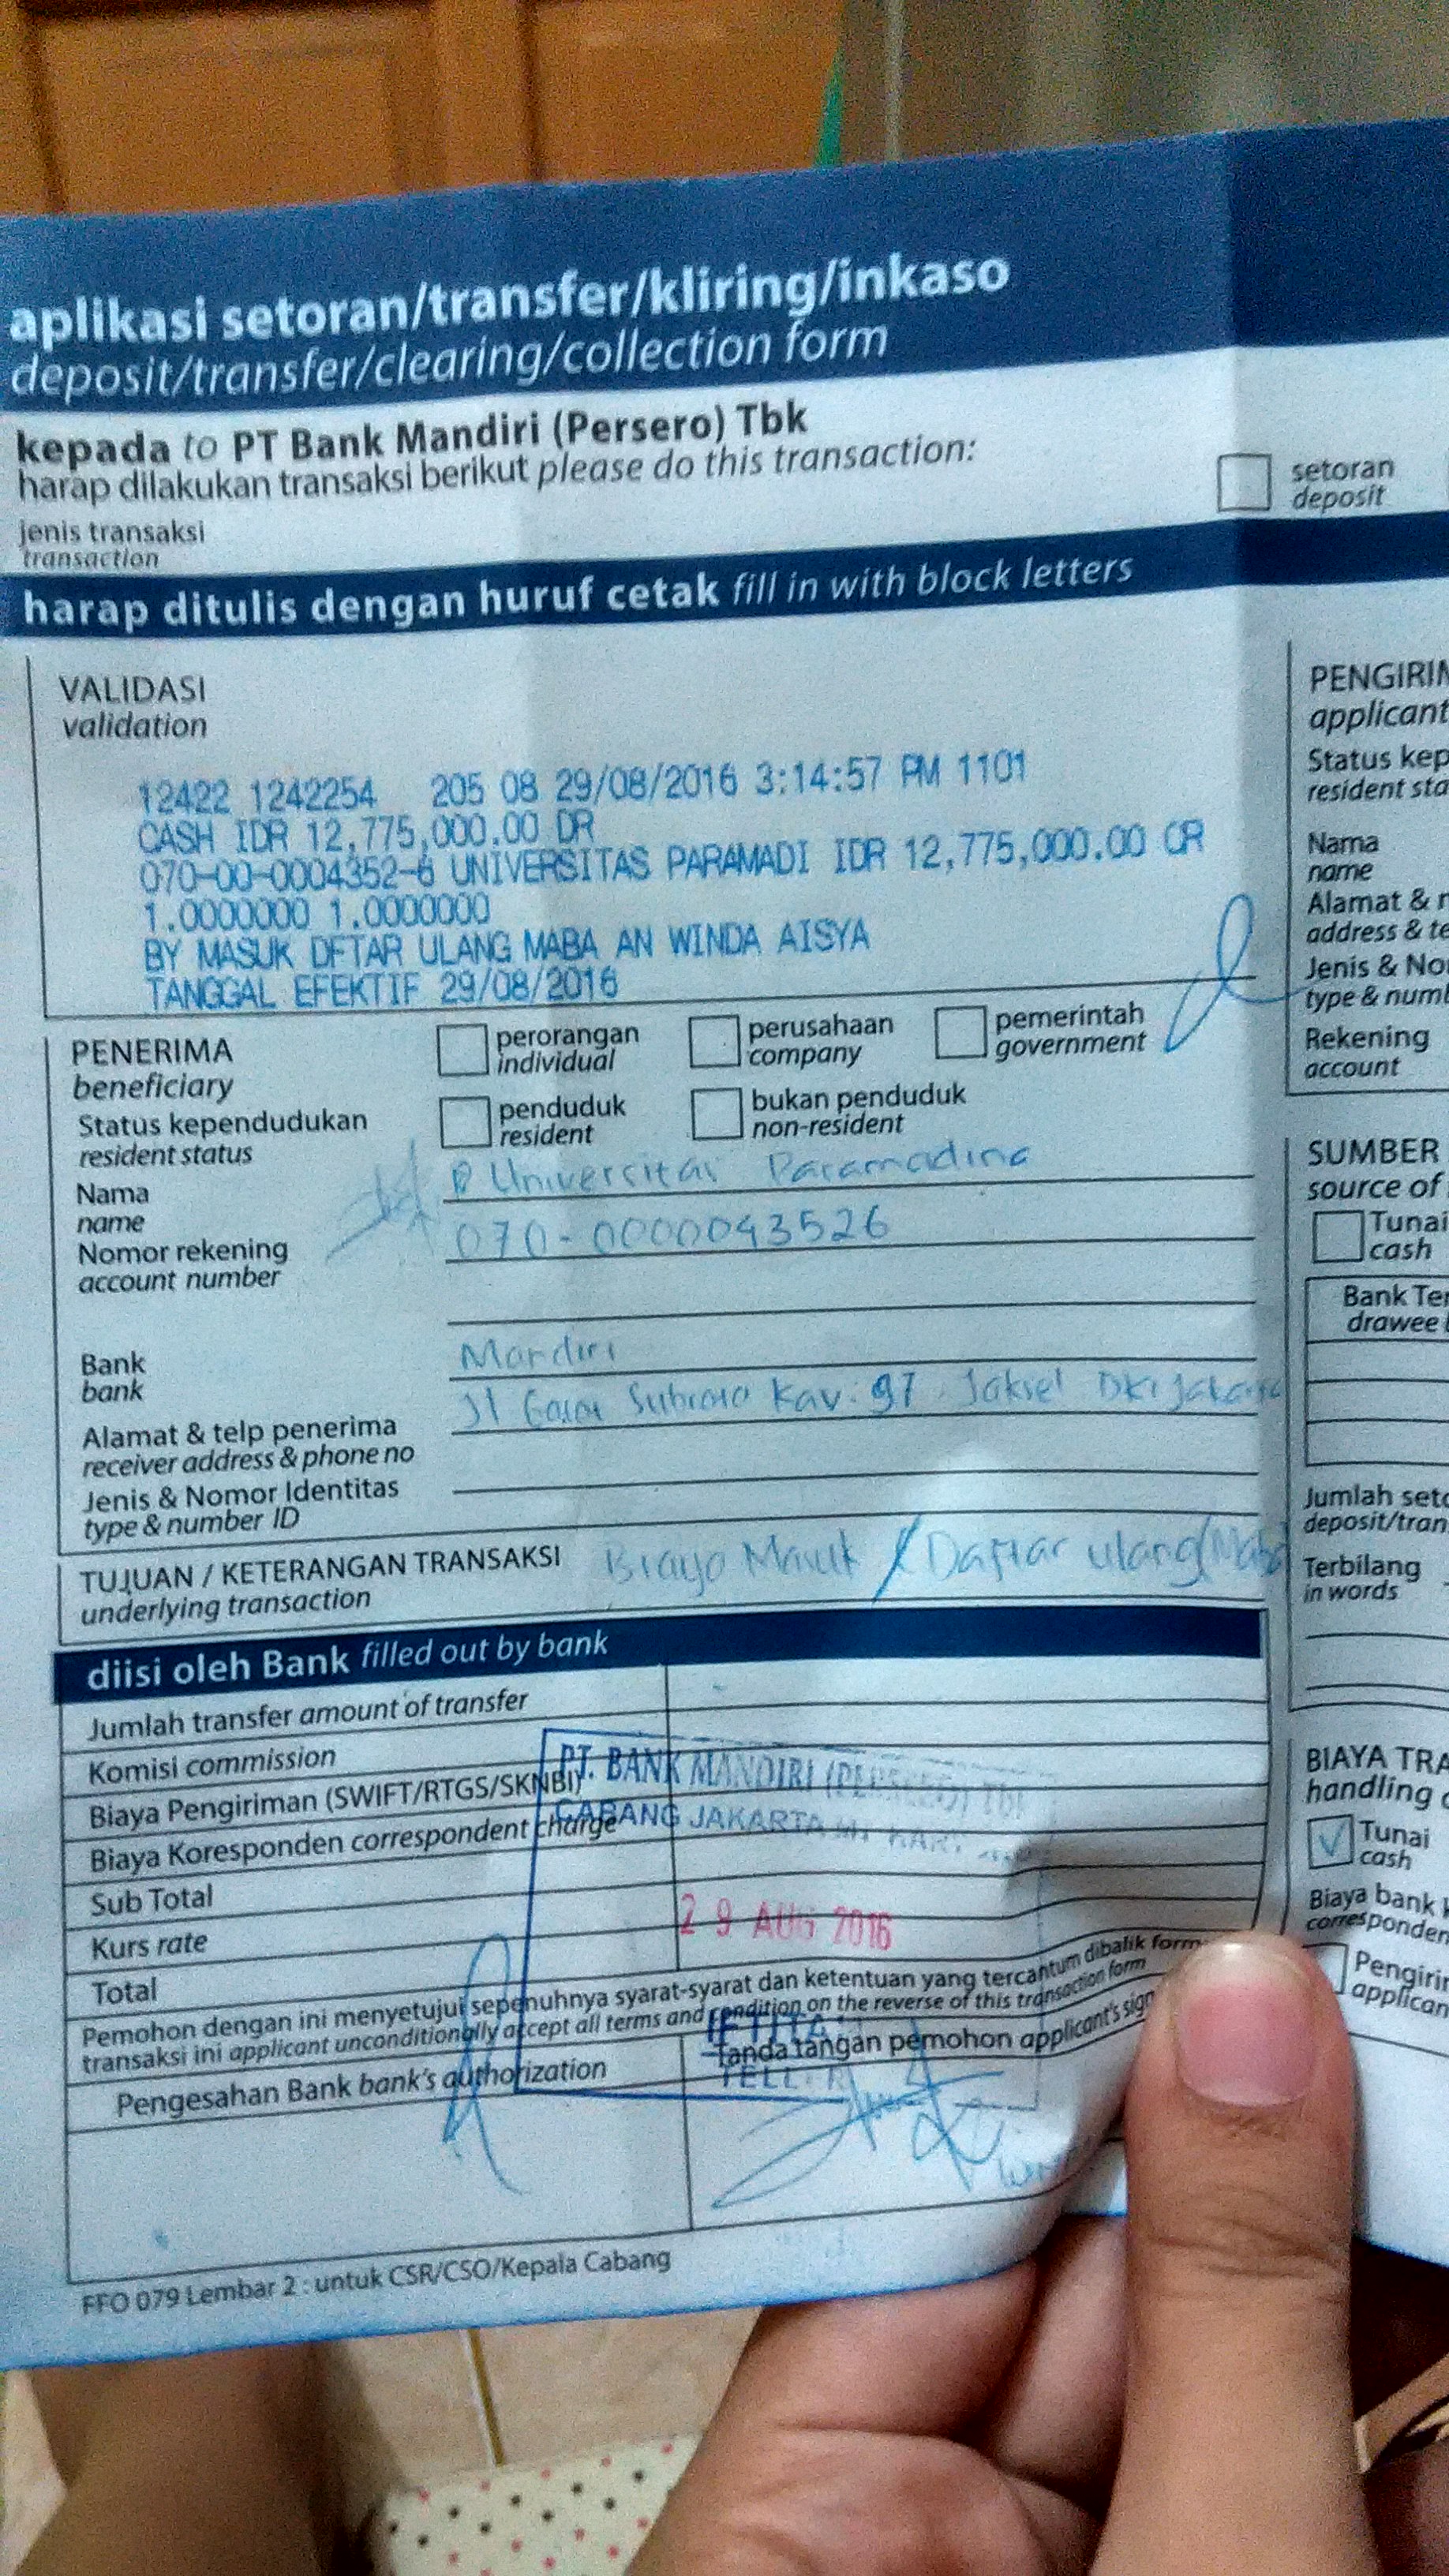 aplikasi setoran/transfer/kliring/inkaso
deposit/transfer/clearing/collection form
kepada to PT Bank Mandiri (Persero) Tbk
harap dilakukan transaksi berikut please do this transaction:
setoran
deposit
jenis transaksi
transaction
harap ditulis dengan huruf cetak fill in with block letters
VALIDASI
validation
12422 1242254 205 08 29/08/2016 3:14:57 PM 1101
CASH IDR 12,775,000.00 DR
070-00-0004352-6 UNIVERSITAS PARAMADI IDR 12,775,000.00 CR
1.0000000 1.0000000
BY MASUK DFTAR ULANG MABA AN WINDA AISYA
TANGGAL EFEKTIF 29/08/2016
PENERIMA
beneficiary
perorangan
individual
perusahaan
company
pemerintah
government
Status kependudukan
resident status
penduduk
resident
bukan penduduk
non-resident
Nama
name
Universitas Paramadina
Nomor rekening
account number
070-0000043526
Bank
bank
Mandiri
Alamat & telp penerima
receiver address & phone no
Jl Gatot Subroto Kav. 97 Jaksel DKI Jakarta
Jenis & Nomor Identitas
type & number ID
TUJUAN / KETERANGAN TRANSAKSI
underlying transaction
Biaya Masuk / Daftar ulang (Maba
diisi oleh Bank filled out by bank
Jumlah transfer amount of transfer
Komisi commission
Biaya Pengiriman (SWIFT/RTGS/SKNBI)
Biaya Koresponden correspondent charge
Sub Total
Kurs rate
Total
PT. BANK MANDIRI (PERSERO) Tbk
CABANG JAKARTA MT
29 AUG 2016
TELLER
Pemohon dengan ini menyetujui sepenuhnya syarat-syarat dan ketentuan yang tercantum dibalik form
transaksi ini applicant unconditionally accept all terms and condition on the reverse of this transaction form
Pengesahan Bank bank's authorization
Tanda tangan pemohon applicant's sign
FFO 079 Lembar 2 : untuk CSR/CSO/Kepala Cabang
PENGIRIM
applicant
Status kep
resident sta
Nama
name
Alamat & n
address & te
Jenis & No
type & num
Rekening
account
SUMBER
source of
Tunai
cash
Bank Ter
drawee
Jumlah seto
deposit/tran
Terbilang
in words
BIAYA TRA
handling
Tunai
cash
Biaya bank
corresponden
Pengirim
applican